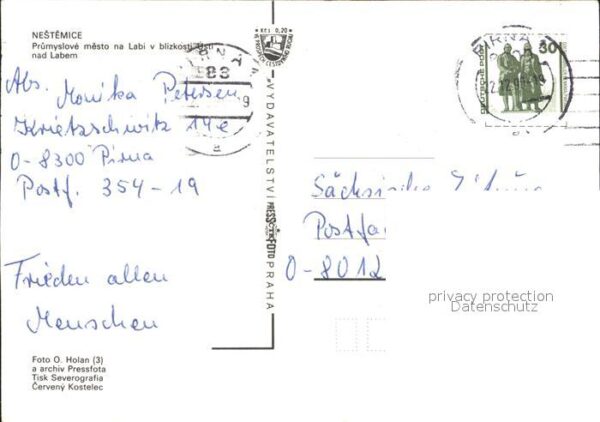 NEŠTĚMICE
Průmyslové město na Labi v blízkosti Ústí
nad Labem
Abs. Monika Petersen
Krietzschwitz 14e
O-8300 Pirna
Postf. 354-19
Frieden allen
Menschen
Foto O. Holan (3)
a archiv Pressfota
Tisk Severografia
Červený Kostelec
Kčs 0,20
VYDAVATELSTVÍ PRESSFOTO PRAHA
PIRNA
83
DEUTSCHE POST
30
PIRNA
Postfa
O-8012
privacy protection
Datenschutz